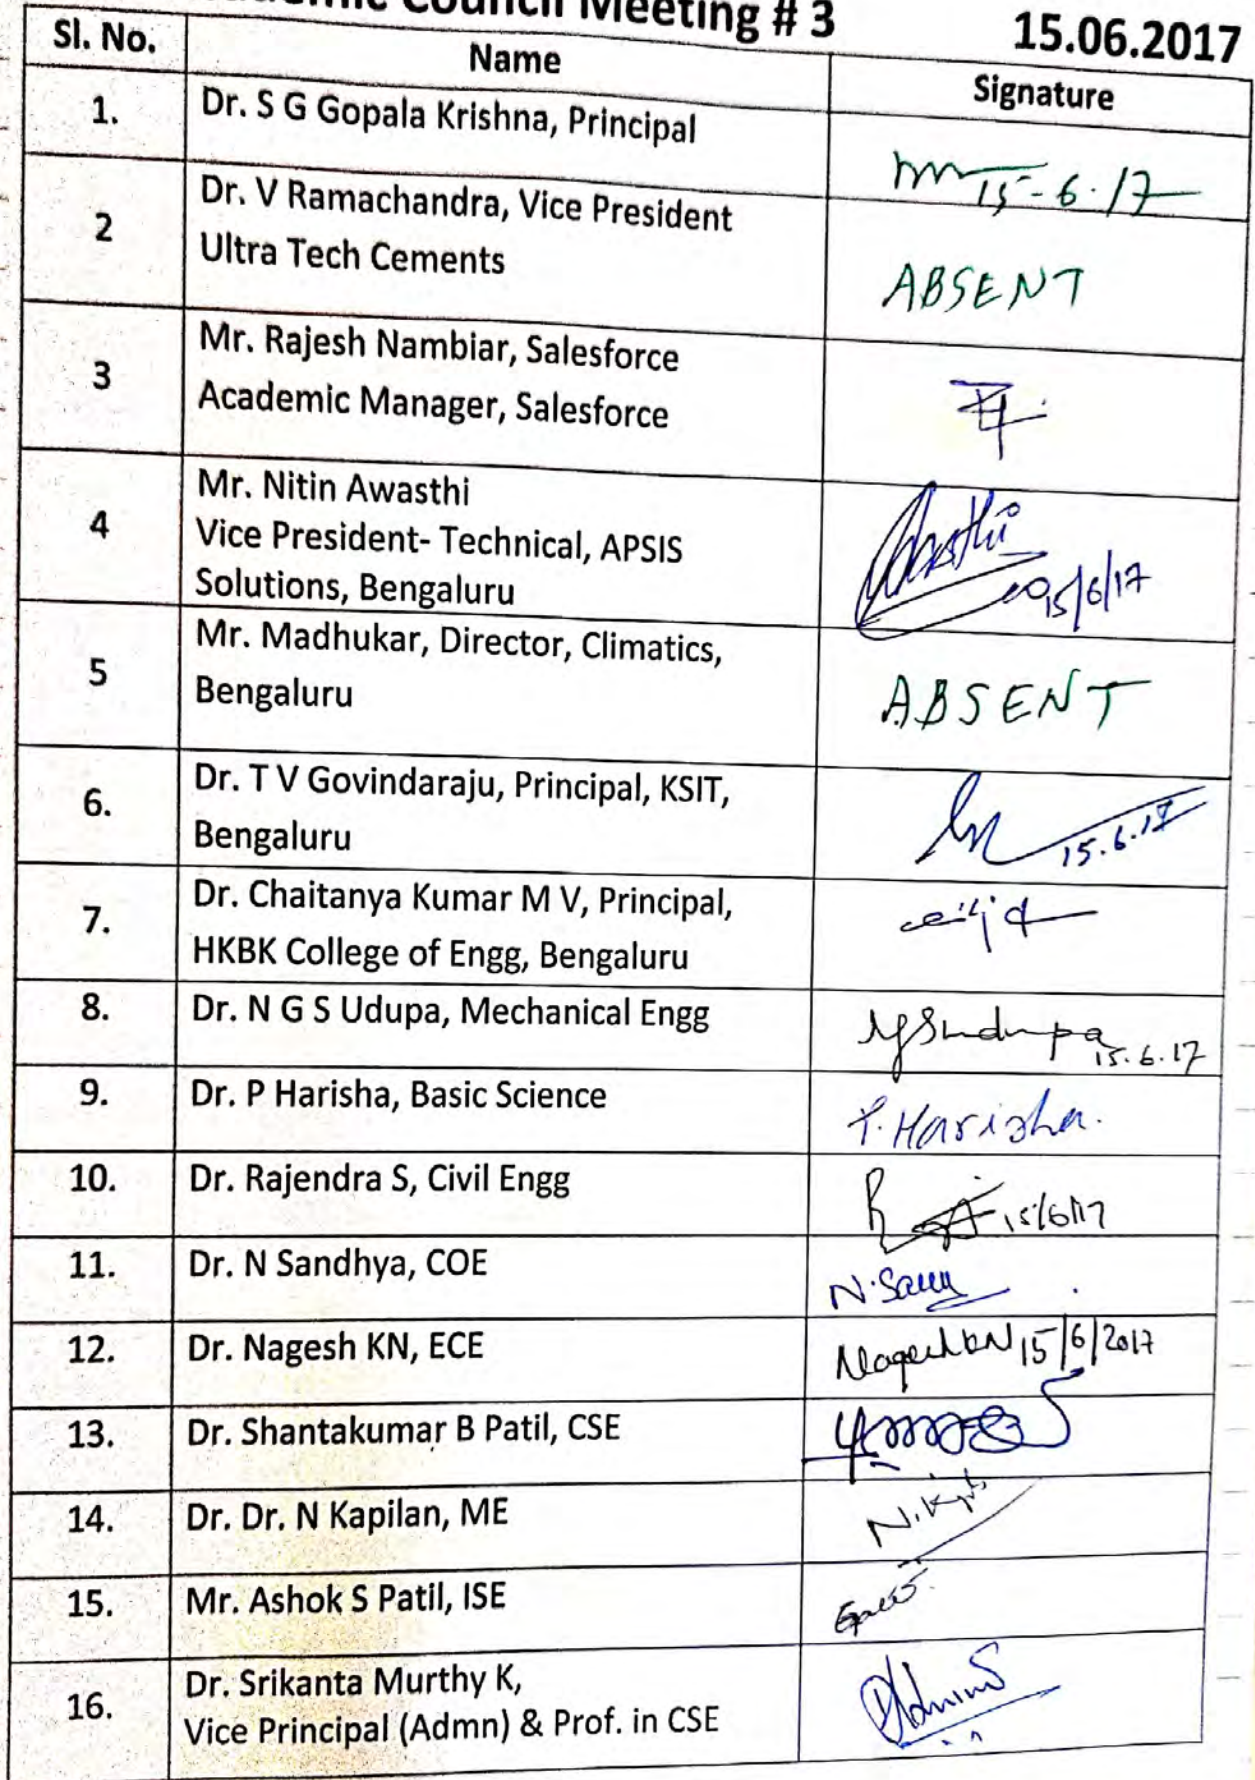 Council Meeting # 3 15.06.2017
Sl. No. Name Signature
1. Dr. S G Gopala Krishna, Principal
15-6-17
2 Dr. V Ramachandra, Vice President
Ultra Tech Cements
ABSENT
3 Mr. Rajesh Nambiar, Salesforce
Academic Manager, Salesforce
4 Mr. Nitin Awasthi
Vice President- Technical, APSIS
Solutions, Bengaluru
15/6/17
5 Mr. Madhukar, Director, Climatics,
Bengaluru
ABSENT
6. Dr. T V Govindaraju, Principal, KSIT,
Bengaluru
15.6.17
7. Dr. Chaitanya Kumar M V, Principal,
HKBK College of Engg, Bengaluru
8. Dr. N G S Udupa, Mechanical Engg
15.6.17
9. Dr. P Harisha, Basic Science
P. Harisha.
10. Dr. Rajendra S, Civil Engg
15/6/17
11. Dr. N Sandhya, COE
12. Dr. Nagesh KN, ECE
Nagesh KN 15/6/2017
13. Dr. Shantakumar B Patil, CSE
14. Dr. Dr. N Kapilan, ME
15. Mr. Ashok S Patil, ISE
16. Dr. Srikanta Murthy K,
Vice Principal (Admn) & Prof. in CSE